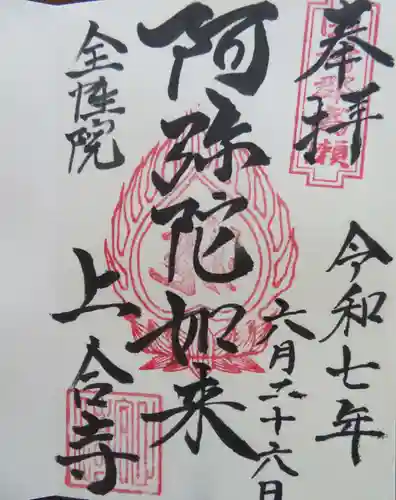 奉拝
令和七年
六月二十六日
阿弥陀如来
上合寺